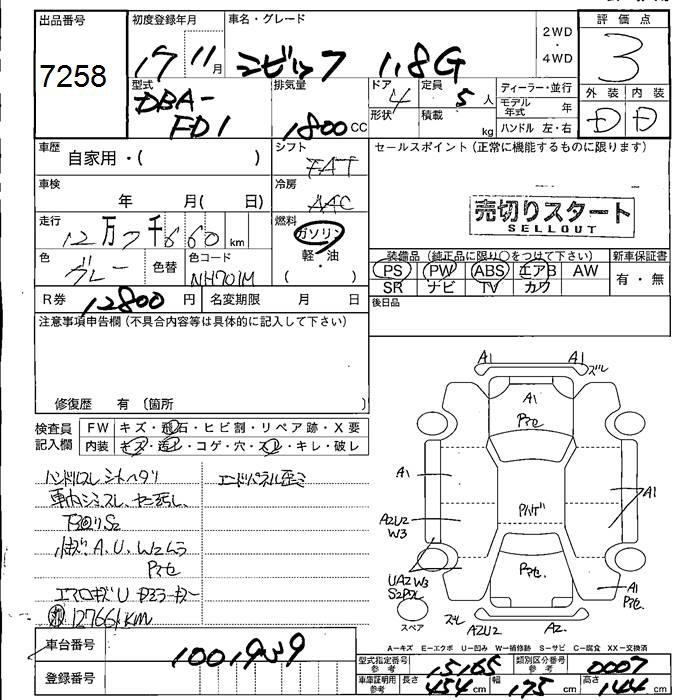 出品番号
初度登録年月
車名・グレード
2WD
・
4WD
評価点
7258
19 11 月
シビック 1.8G
3
型式
DBA-
FD1
排気量
1800 CC
ドア 4
形状
定員 5 人
積載 kg
ディーラー・並行
モデル年式 年
ハンドル 左・右
外装 内装
D D
車歴
自家用・( )
シフト
FAT
セールスポイント(正常に機能するものに限ります)
車検
年 月( 日)
冷房
AAC
売切りスタート
SELLOUT
走行
12万7千660 km
燃料
ガソリン
軽・油
色
グレー
色替
色コード
NH701M
装備品(純正品に限り○をつけて下さい)
新車保証書
PS PW ABS エアB AW
SR ナビ TV カワ
有・無
R券 12800 円
名変期限 月 日
後日品
注意事項申告欄(不具合内容等は具体的に記入して下さい)
修復歴 有(箇所
検査員
記入欄
FW キズ・飛石・ヒビ割・リペア跡・X要
内装 キズ・汚レ・コゲ・穴・スレ・キレ・破レ
ハンドルスレ シートヘタリ
エンドパネル歪ミ
下回りS2
小キズ A.U.W2ムラ
127661KM
A1 A1 ズレ
A1
A1
A1
A2U2
W3
UA2W3
S2
スペア
ズレ
A2U2
A2.
A1
A-キズ E-エクボ U-凹み W-補修跡 S-サビ C-腐食 XX-交換済
車台番号
1001939
登録番号
型式指定番号
参考
15165
類別区分番号
参考
0007
車庫証明用
参考
長さ 454 cm
幅 175 cm
高さ 144 cm